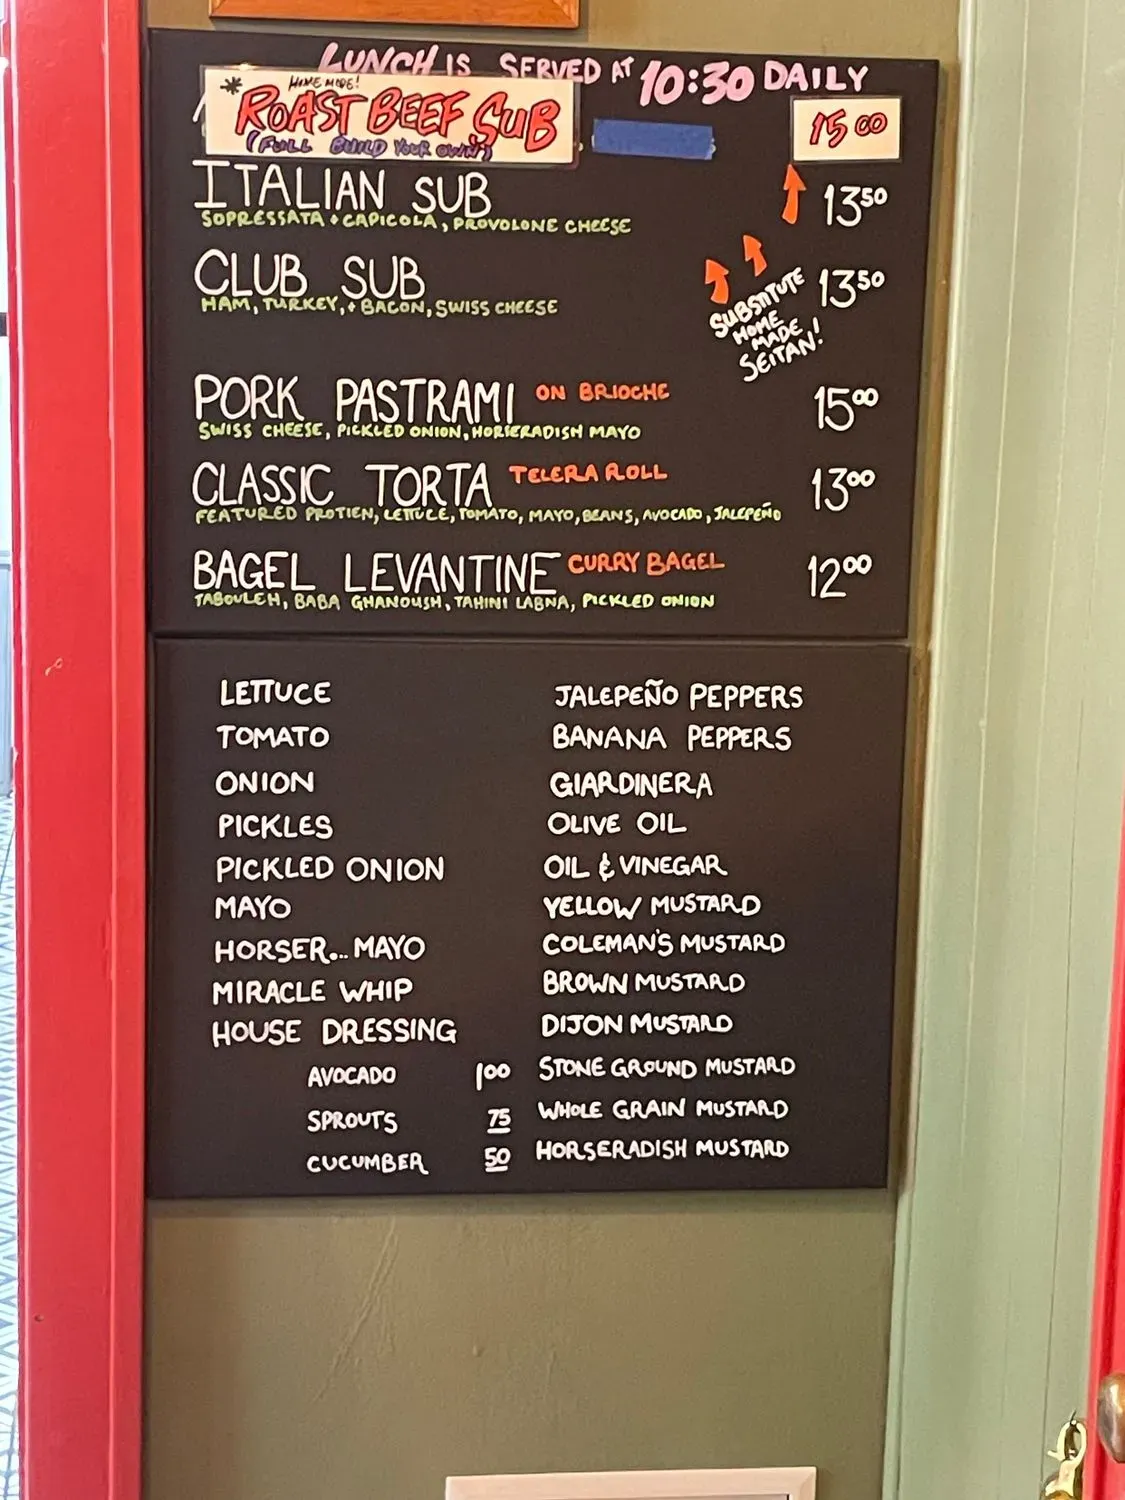 LUNCH IS SERVED AT 10:30 DAILY
* HOME MADE!
ROAST BEEF SUB 15 00
(FULL BUILD YOUR OWN)
ITALIAN SUB 13 50
SOPRESSATA + CAPICOLA, PROVOLONE CHEESE
CLUB SUB 13 50
HAM, TURKEY, + BACON, SWISS CHEESE
SUBSTITUTE
HOME
MADE
SEITAN!
PORK PASTRAMI ON BRIOCHE 15 00
SWISS CHEESE, PICKLED ONION, HORSERADISH MAYO
CLASSIC TORTA TELERA ROLL 13 00
FEATURED PROTIEN, LETTUCE, TOMATO, MAYO, BEANS, AVOCADO, JALEPEÑO
BAGEL LEVANTINE CURRY BAGEL 12 00
TABOULEH, BABA GHANOUSH, TAHINI LABNA, PICKLED ONION
LETTUCE
TOMATO
ONION
PICKLES
PICKLED ONION
MAYO
HORSER... MAYO
MIRACLE WHIP
HOUSE DRESSING
AVOCADO 1 00
SPROUTS 75
CUCUMBER 50
JALEPEÑO PEPPERS
BANANA PEPPERS
GIARDINERA
OLIVE OIL
OIL & VINEGAR
YELLOW MUSTARD
COLEMAN'S MUSTARD
BROWN MUSTARD
DIJON MUSTARD
STONE GROUND MUSTARD
WHOLE GRAIN MUSTARD
HORSERADISH MUSTARD